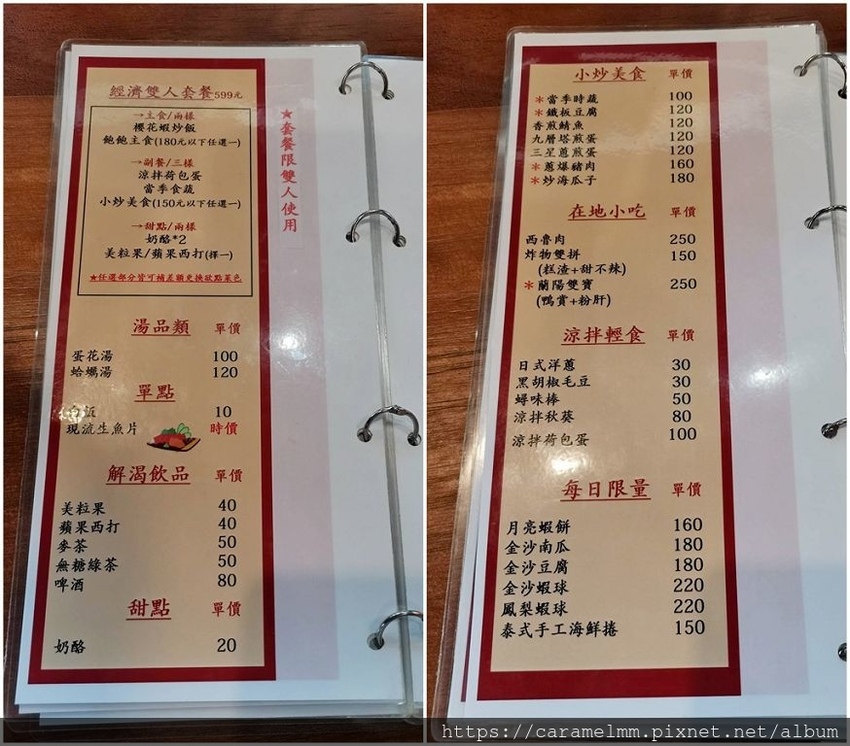 經濟雙人套餐599元
→主食/兩樣
櫻花蝦炒飯
飽飽主食(180元以下任選一)
→副餐/三樣
涼拌荷包蛋
當季食蔬
小炒美食(150元以下任選一)
→甜點/兩樣
奶酪*2
美粒果/蘋果西打(擇一)
★任選部分皆可補差額更換欲點菜色
★套餐限雙人使用
湯品類 單價
蛋花湯 100
蛤蠣湯 120
單點
白飯 10
現流生魚片 時價
解渴飲品 單價
美粒果 40
蘋果西打 40
麥茶 50
無糖綠茶 50
啤酒 80
甜點 單價
奶酪 20
小炒美食 單價
*當季時蔬 100
*鐵板豆腐 120
香煎鯖魚 120
九層塔煎蛋 120
三星蔥煎蛋 120
*蔥爆豬肉 160
*炒海瓜子 180
在地小吃 單價
西魯肉 250
炸物雙拼 150
(糕渣+甜不辣)
*蘭陽雙寶 250
(鴨賞+粉肝)
涼拌輕食 單價
日式洋蔥 30
黑胡椒毛豆 30
蟳味棒 50
涼拌秋葵 80
涼拌荷包蛋 100
每日限量 單價
月亮蝦餅 160
金沙南瓜 180
金沙豆腐 180
金沙蝦球 220
鳳梨蝦球 220
泰式手工海鮮捲 150
https://caramelmm.pixnet.net/album